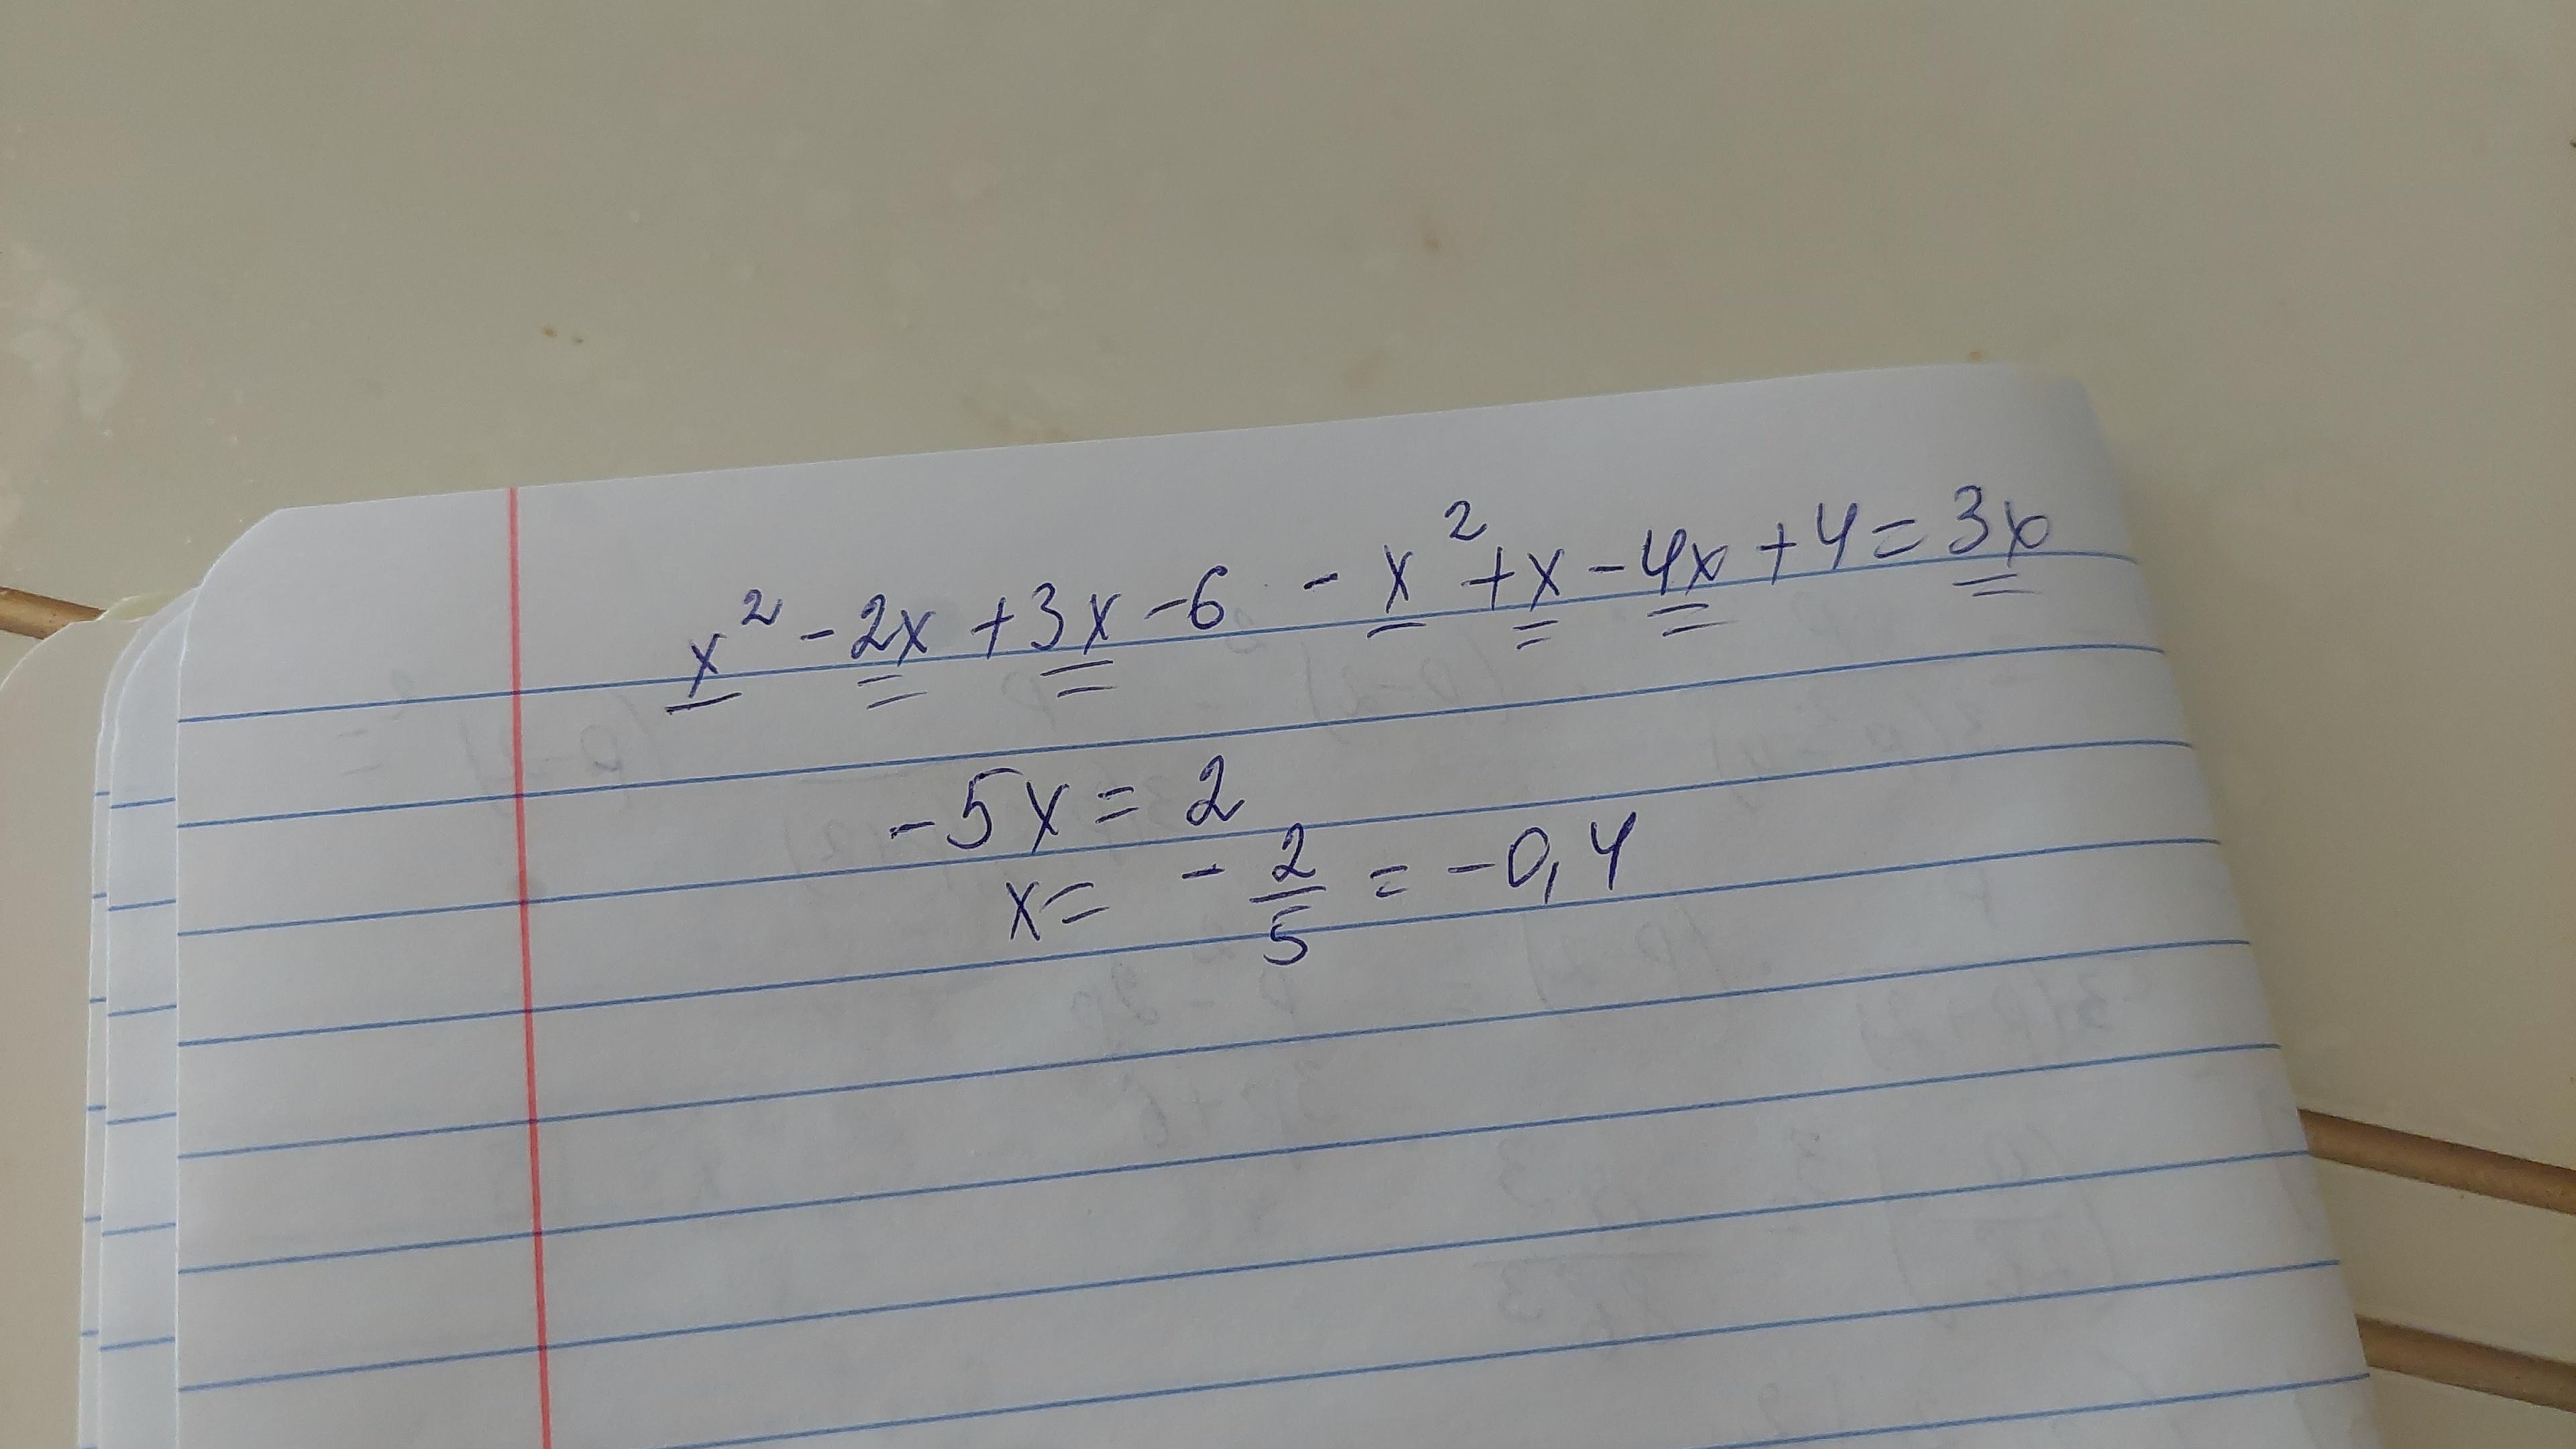 x² - 2x + 3x - 6 - x² + x - 4x + 4 = 3x
-5x = 2
x = - 2/5 = -0,4